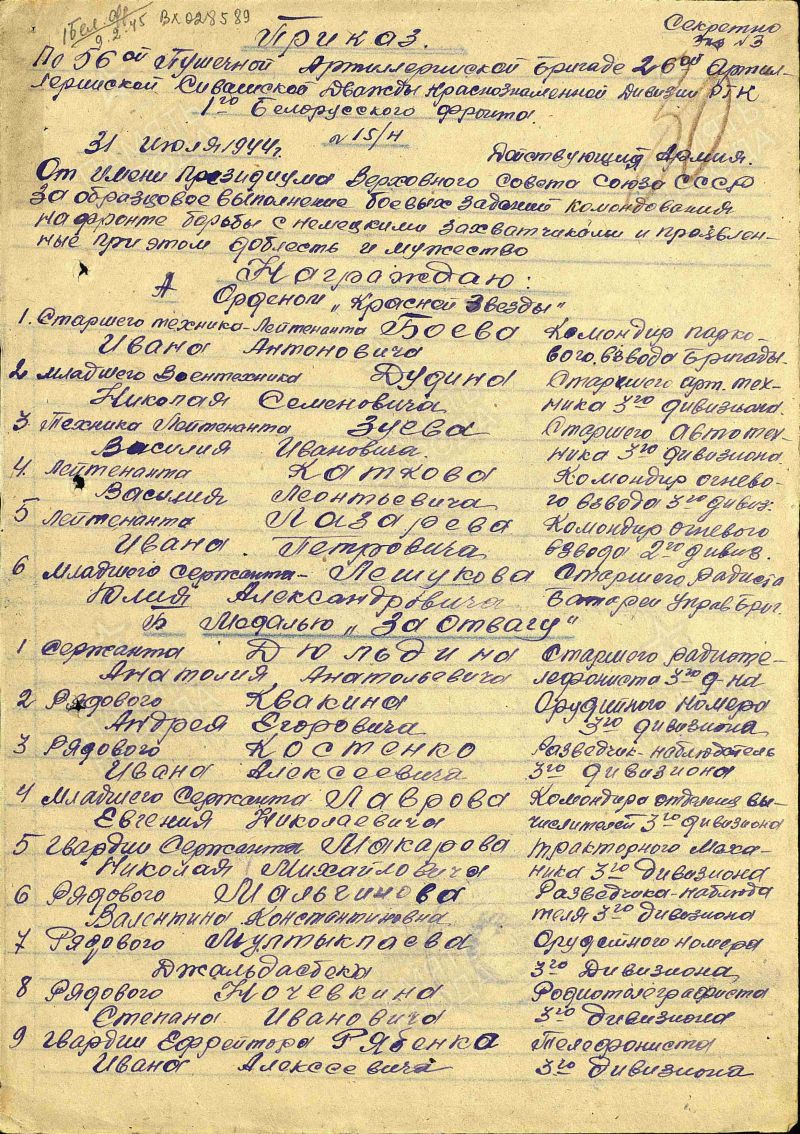 1 Бел. фр.
9.2.45 Вх 028589
Секретно
экз №3
Приказ.
По 56ой Пушечной Артиллерийской Бригаде 26ой Артил-
лерийской Сивашской Дважды Краснознаменной Дивизии РГК
1го Белорусского фронта
№ 15/н
31 Июля 1944г. Действующая Армия.
От имени Президиума Верховного Совета Союза СССР
за образцовое выполнение боевых заданий командования
на фронте борьбы с немецкими захватчиками и проявлен-
ные при этом доблесть и мужество
Награждаю:
А Орденом „Красной Звезды"
1. Старшего техника-Лейтенанта Боева Командир парко-
Ивана Антоновича вого взвода Бригады.
2 Младшего Воентехника Дудина Старшего арт. тех-
Николая Семеновича ника 3го дивизиона.
3 Техника Лейтенанта Зуева Старшего Автотех-
Василия Ивановича. ника 3го дивизиона.
4. Лейтенанта Каткова Командир огнево-
Василия Леонтьевича го взвода 3го дивиз.
5 Лейтенанта Лазарева Командир огневого
Ивана Петровича взвода 2го дивиз.
6 Младшего Сержанта- Лешукова Старшего радиста
Юлия Александровича Батареи Управ Бриг.
Б Медалью „За отвагу"
1 Сержанта Дюльдина Старшего радиоте-
Анатолия Анатольевича лефониста 3го д-на
2 Рядового Квакина Орудийного номера
Андрея Егоровича 3го дивизиона
3 Рядового Костенко Разведчик-наблюдатель
Ивана Алексеевича 3го дивизиона
4 Младшего Сержанта Лаврова Командира отделения вы-
Евгения Николаевича числителей 3го дивизиона
5 Гвардии Сержанта Макарова Тракторного Меха-
Николая Михайловича ника 3го Дивизиона
6 Рядового Мальгинова Разведчика-наблюда
Валентина Константиновича теля 3го дивизиона
7 Рядового Мултыкпаева Орудейного номера
Джальдасбека 3го Дивизиона
8 Рядового Ночевкина Родиотелеграфиста
Степана Ивановича 3го дивизиона
9 Гвардии Ефрейтора Рябенка Телефониста
Ивана Алексеевича 3го дивизиона